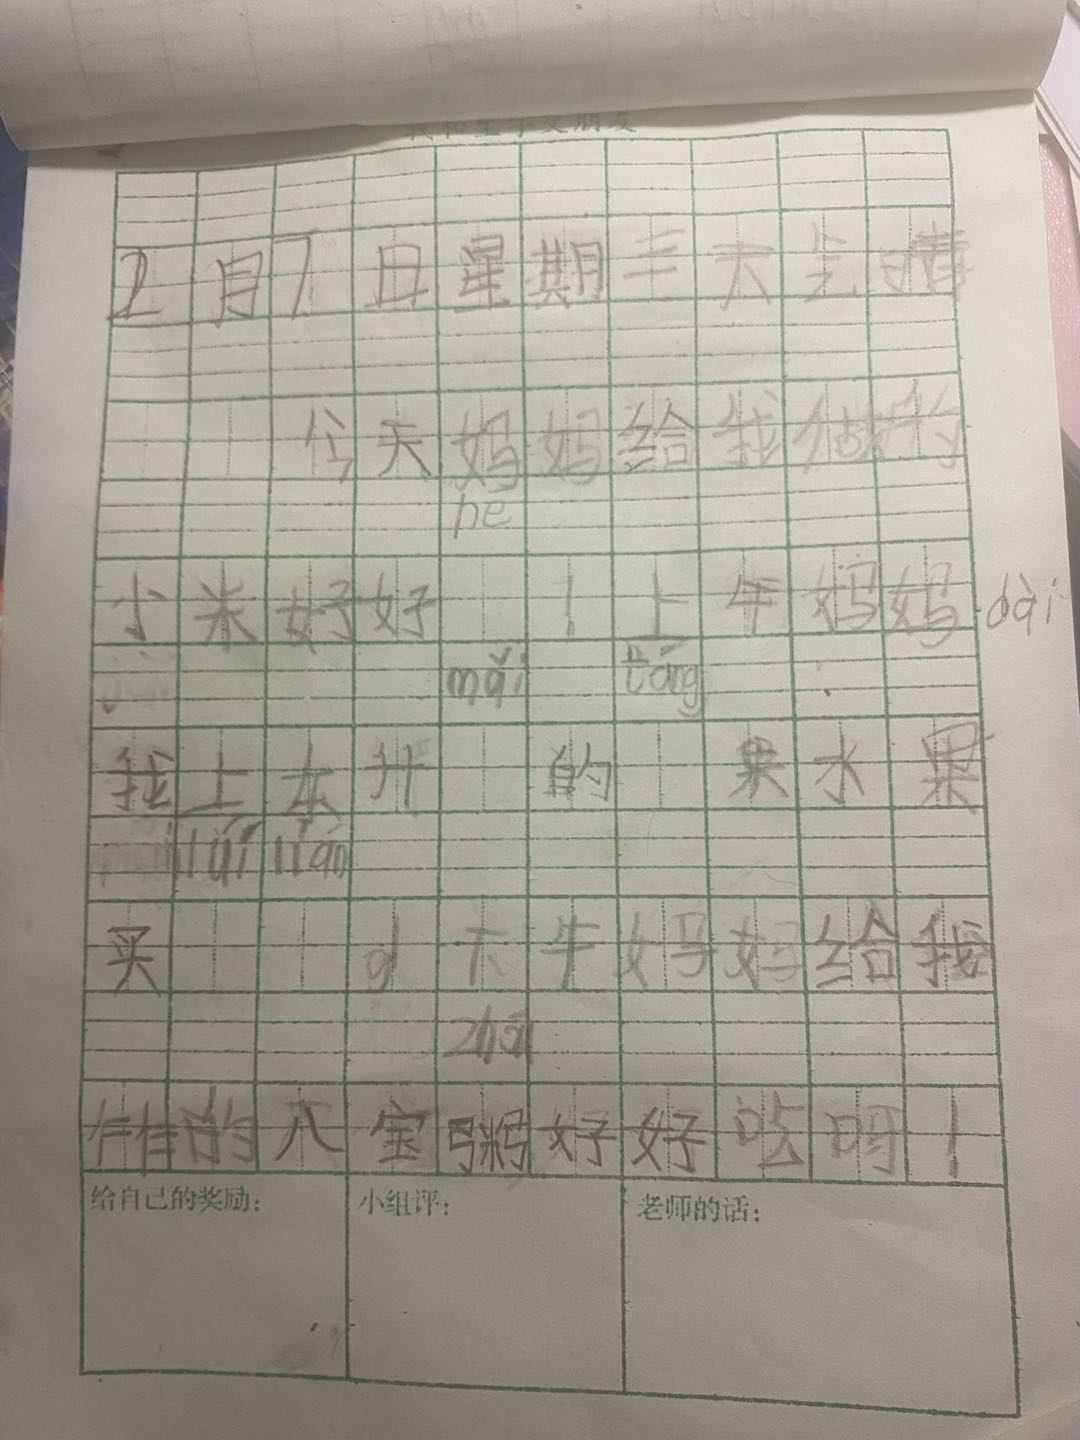 2月7日星期三天气晴
今天妈妈给我做的
he
小米好好!上午妈妈dài
mǎi táng
我上去升的来水果
lúi lián
买d下午妈妈给我
zhōu
做的八宝粥好好吃呀!
给自己的奖励: 小组评: 老师的话: